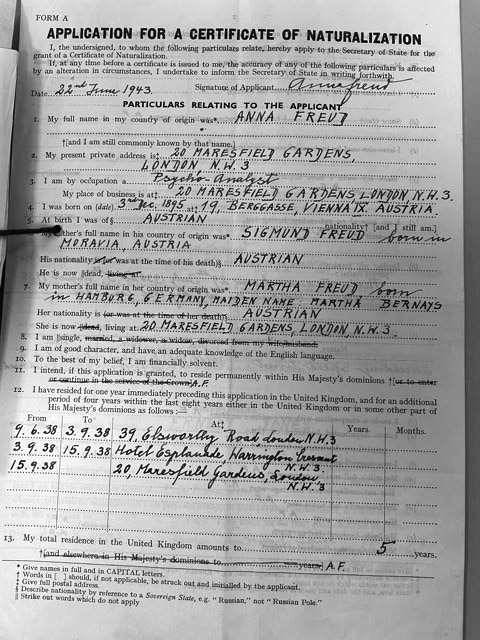 FORM A
APPLICATION FOR A CERTIFICATE OF NATURALIZATION
I, the undersigned, to whom the following particulars relate, hereby apply to the Secretary of State for the
grant of a Certificate of Naturalization.
If, at any time before a certificate is issued to me, the accuracy of any of the following particulars is affected
by an alteration in circumstances, I undertake to inform the Secretary of State in writing forthwith.
Date 22nd June 1943. Signature of Applicant Anna Freud
PARTICULARS RELATING TO THE APPLICANT
1. My full name in my country of origin was* ANNA FREUD
†[and I am still commonly known by that name.]
2. My present private address is‡ 20 MARESFIELD GARDENS,
LONDON N.W.3
3. I am by occupation a Psycho-Analyst
My place of business is at‡ 20 MARESFIELD GARDENS LONDON, N.W.3.
4. I was born on (date) 3rd Dec. 1895 at 19, BERGGASSE, VIENNA IX. AUSTRIA.
5. At birth I was of§ AUSTRIAN nationality† [and I still am.]
father's full name in his country of origin was* SIGMUND FREUD born in
MORAVIA, AUSTRIA
His nationality is/or was at the time of his death)§ AUSTRIAN
He is now ‖dead, living at
7. My mother's full name in her country of origin was* MARTHA FREUD born
in HAMBURG, GERMANY, MAIDEN NAME: MARTHA BERNAYS
Her nationality is (or was at the time of her death)§ AUSTRIAN
She is now ‖dead, living at 20 MARESFIELD GARDENS, LONDON, N.W.3.
8. I am ‖single, married, a widower, a widow, divorced from my wife/husband.
9. I am of good character, and have an adequate knowledge of the English language.
10. To the best of my belief, I am financially solvent.
11. I intend, if this application is granted, to reside permanently within His Majesty's dominions †[or to enter
or continue in the service of the Crown] A.F.
12. I have resided for one year immediately preceding this application in the United Kingdom, and for an additional
period of four years within the last eight years either in the United Kingdom or in some other part of
His Majesty's dominions as follows :—
From To At‡ Years. Months.
9.6.38 3.9.38 39, Elsworthy Road, London N.W.3
3.9.38 15.9.38 Hotel Esplanade Warrington Crescent
N.W.3.
15.9.38 20, Maresfield Gardens, London
N.W.3
13. My total residence in the United Kingdom amounts to 5 years.
†[and elsewhere in His Majesty's dominions to years] A.F.
* Give names in full and in CAPITAL letters.
† Words in [ ] should, if not applicable, be struck out and initialled by the applicant.
‡ Give full postal address.
§ Describe nationality by reference to a Sovereign State, e.g. "Russian," not "Russian Pole."
‖ Strike out words which do not apply